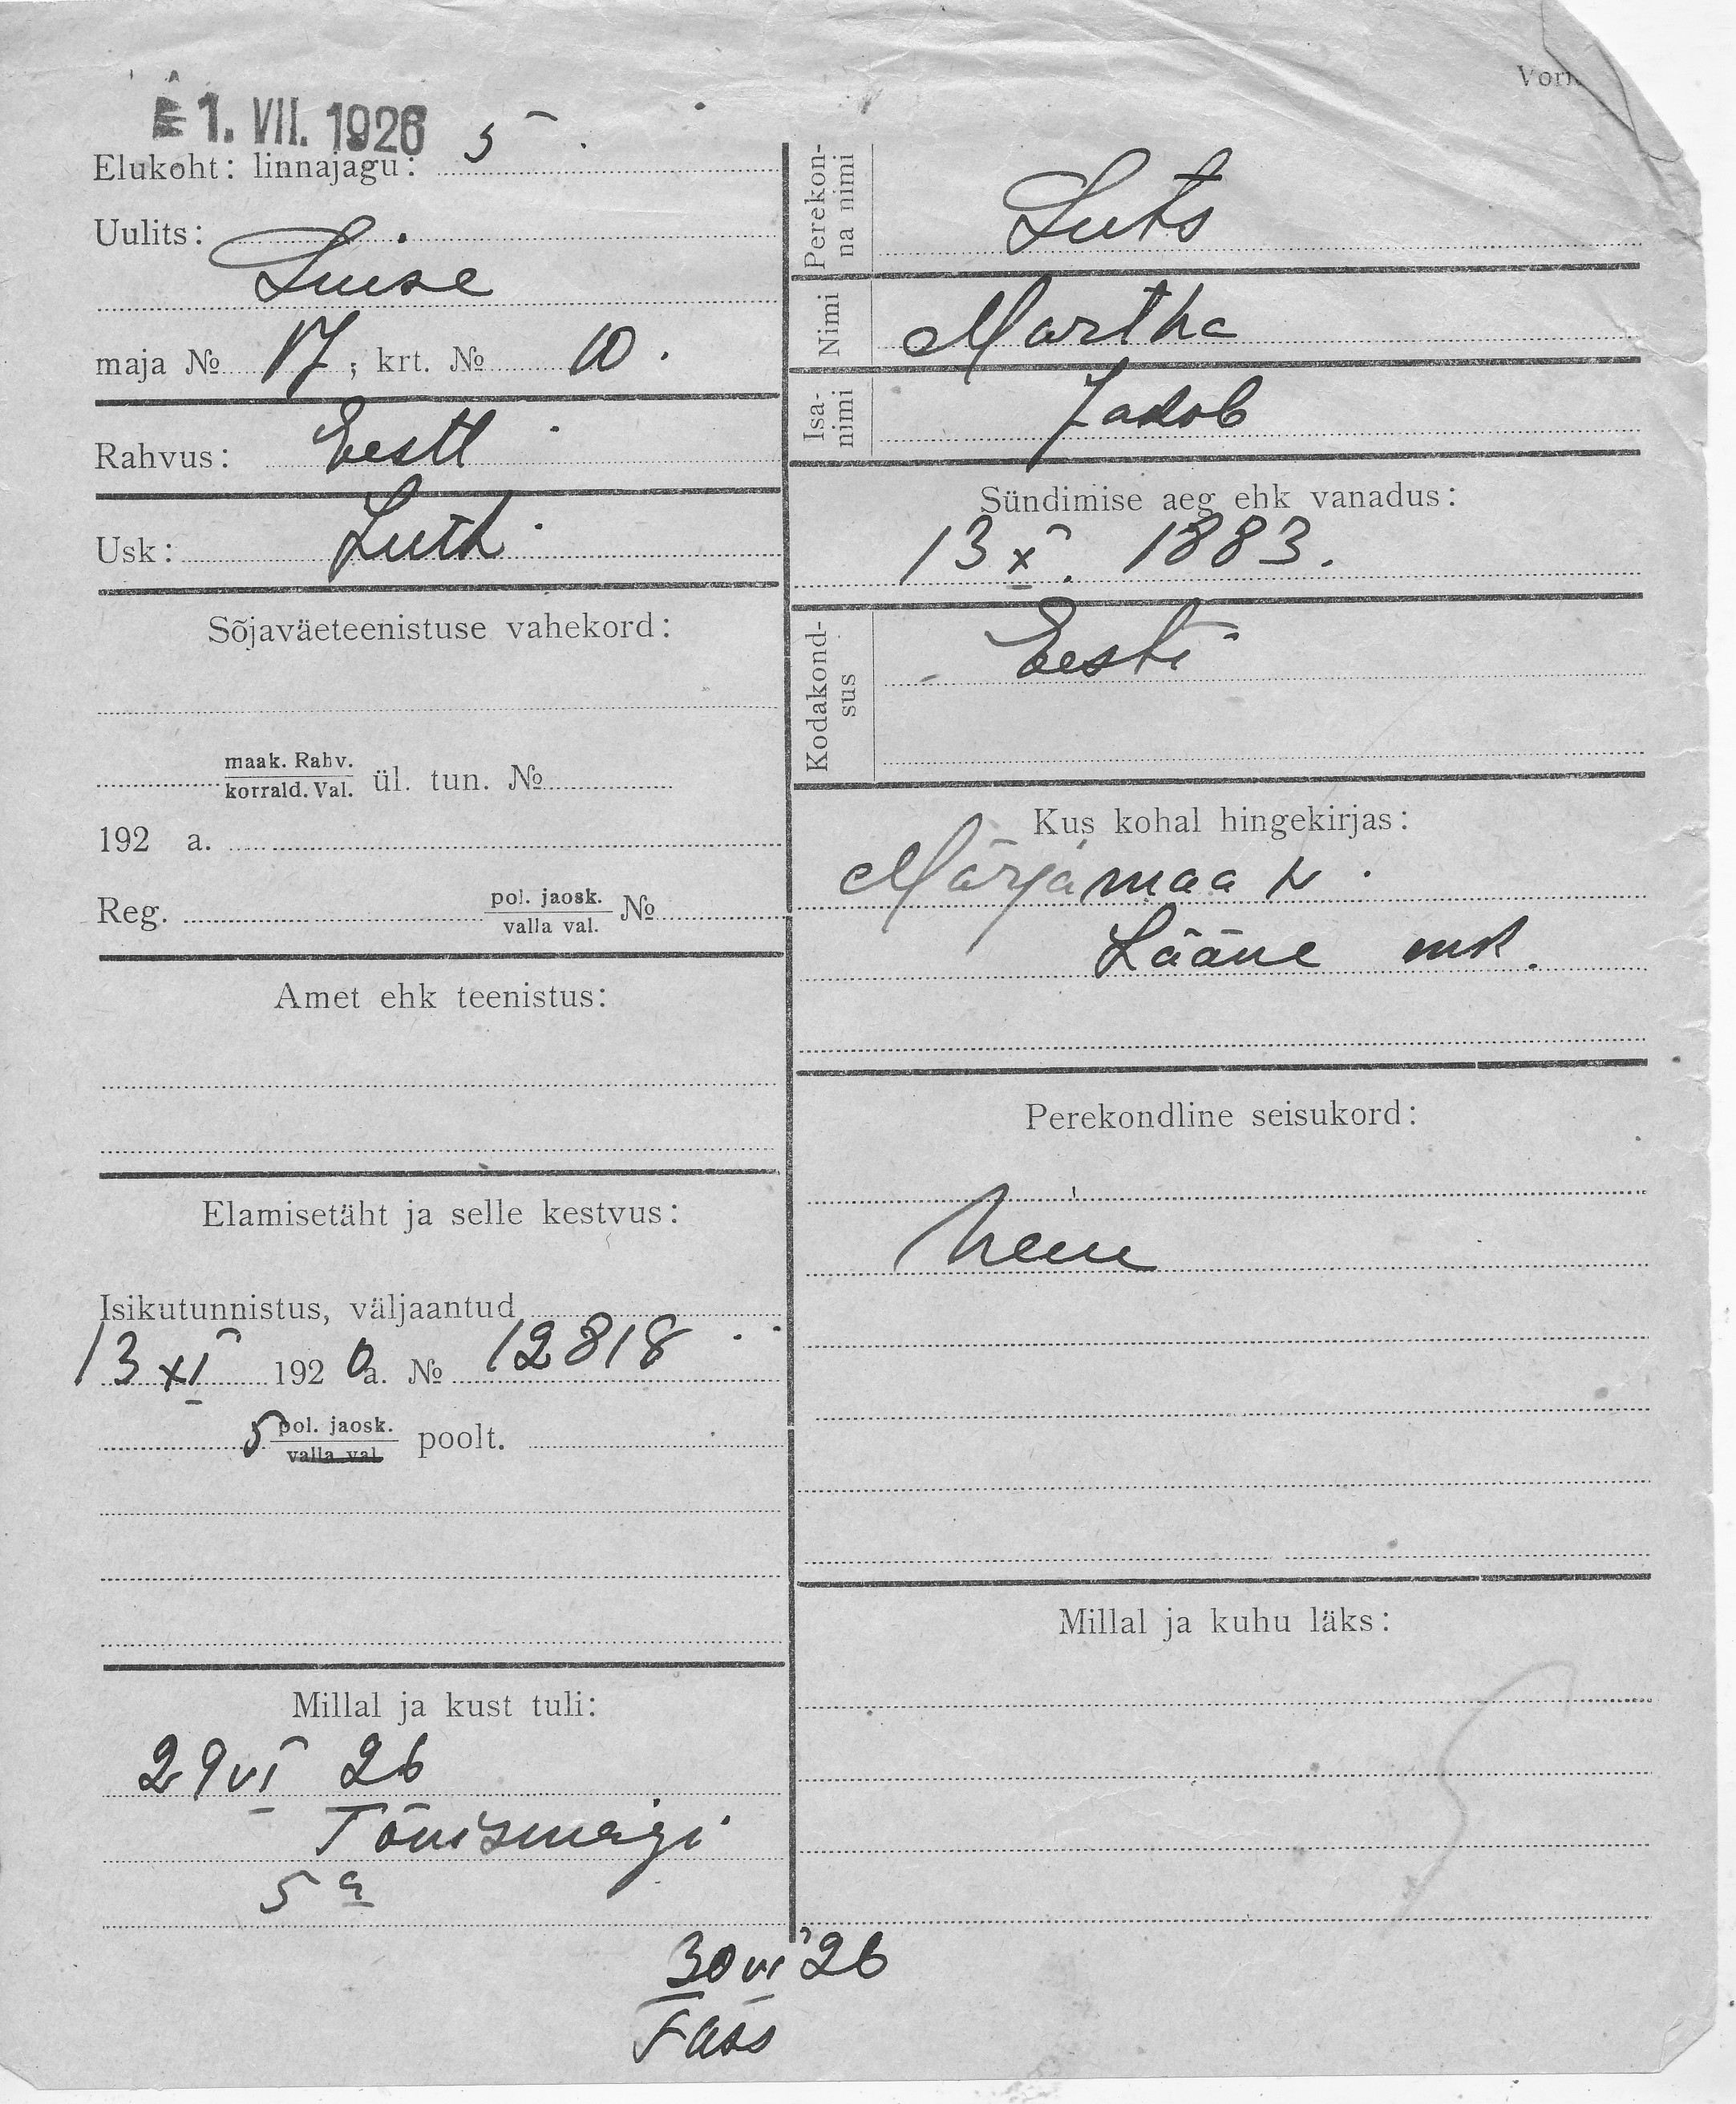 Vorm
1. VII. 1926
Elukoht: linnajagu: 5
Uulits:
Luise
maja № 17; krt. № 10.
Rahvus: Eesti
Usk: Luth
Sõjaväeteenistuse vahekord:
maak. Rahv.
korrald. Val. ül. tun. №
192 a.
Reg. pol. jaosk. №
valla val.
Amet ehk teenistus:
Elamisetäht ja selle kestvus:
Isikutunnistus, väljaantud
13 XI 1920 a. № 12818
5 pol. jaosk. poolt.
valla val.
Millal ja kust tuli:
29 VI 26
Tõnismägi
5 a
Perekon-
na nimi
Luts
Nimi Martha
Isa-
nimi
Jakob
Sündimise aeg ehk vanadus:
13 X. 1883.
Kodakond-
sus
Eesti
Kus kohal hingekirjas:
Märjamaa v.
Lääne mk.
Perekondline seisukord:
Millal ja kuhu läks:
30 VI 26